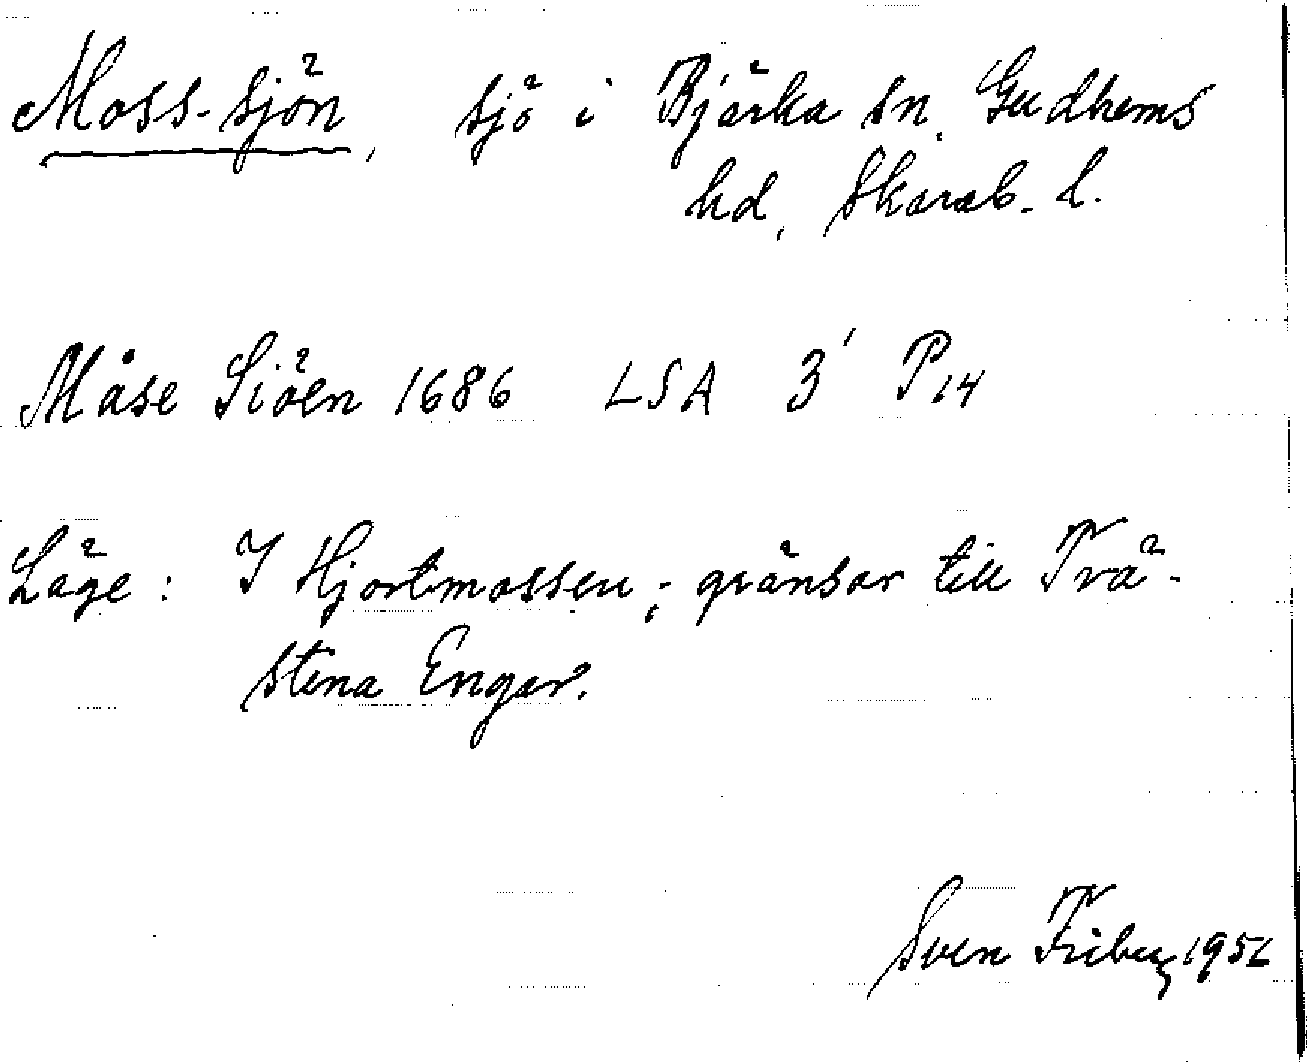 Moss-sjön, sjö i Bjärka sn. Gudhems
hd, Skarab. l.
Måse Siöen 1686 LSA 3' P14
Läge: I Hjortmossen; gränsar till Trä-
stena Engar.
Sven Friberg